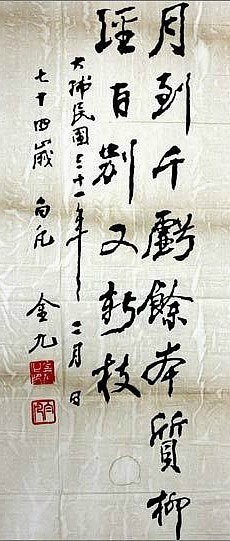 月到千虧餘本質柳
經百別又新枝
大韓民國三十一年二月日
七十四歲白凡金九